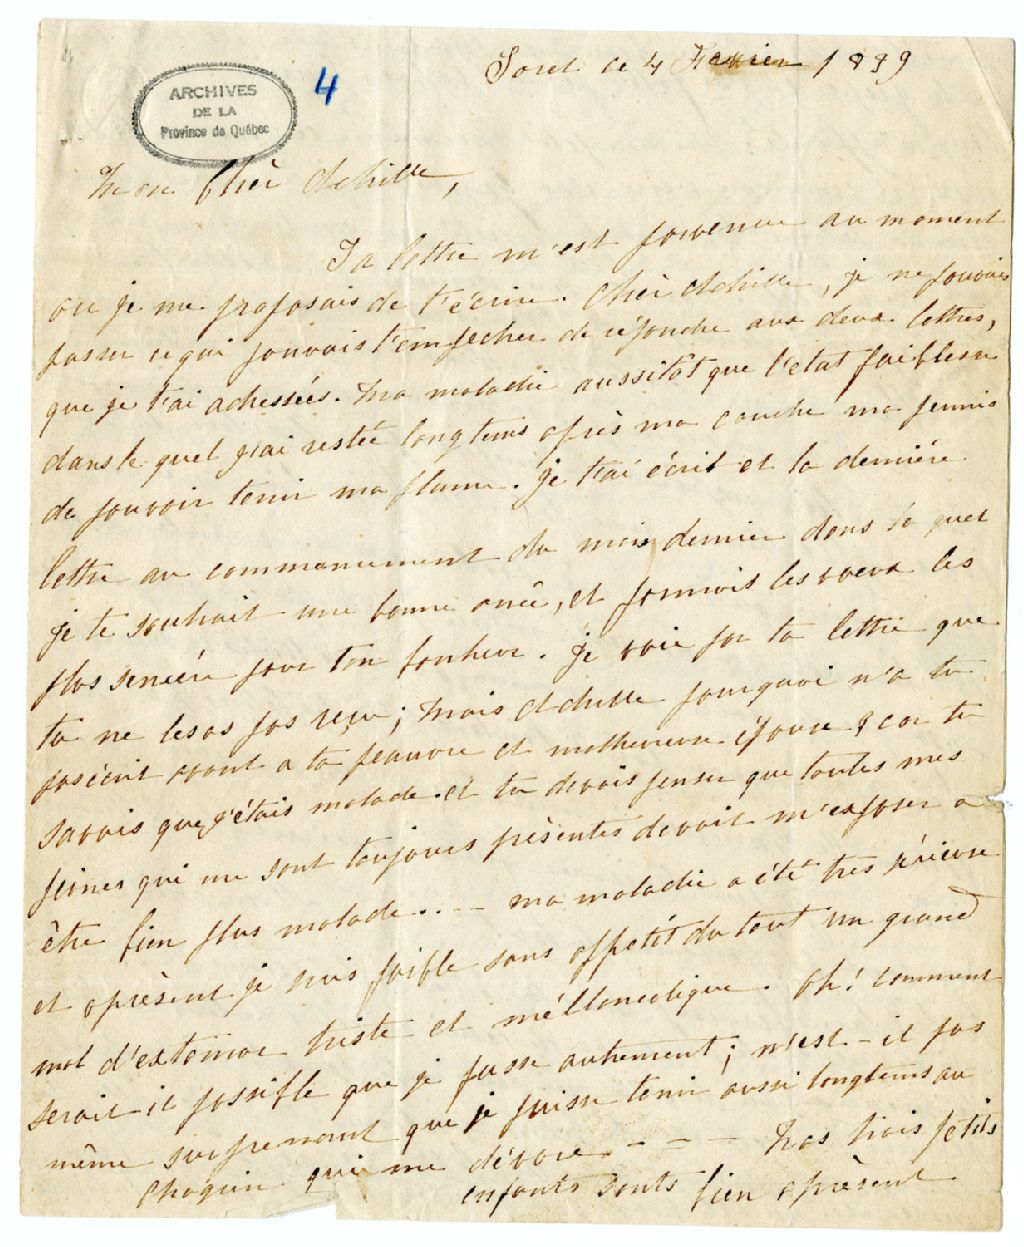 ARCHIVES
DE LA
Province de Québec
4
Sorel ce 4 Fevrier 1839
Mon Chèr Achille,
Ta lettre m'est parvenue au moment
ou je me proposais de t'écrire. Chèr Achille, je ne pouvais
penser ce qui pouvais t'empecher de répondre aux deux lettres,
que je t'ai adressées. Ma maladie aussitôt que l'état faiblesse
dans le quel j'ai restée longtems après ma couche ma permis
de pouvoir tenir ma plume. Je t'ai écrit et la dernière
lettre au commencement du mois dernier dans la quel
je te souhait une bonne anée, et formois les voeux les
plus sencére pour ton bonheur. Je voie par ta lettre que
tu ne les as pas reçu; Mais Achille pourquoi n'a tu
pas écrit avant a ta peauvre et malheureuse épouse? car tu
savais que j'étais malade et tu devais penser que toutes mes
peines qui me sont toujours présentes devoit m'exposer a
être bien plus malade.. — ma maladie a été très sérieuse
et aprèsent je suis faible sans appetit du tout un grand
mal d'extomac triste et méllancolique. Oh! comment
serait-il possible que je fusse autrement; n'est-il pas
même surprenant que je puisse tenir aussi longtems au
chagrin qui me dévore. - - - Nos trois petits
enfants sonts bien aprèsent